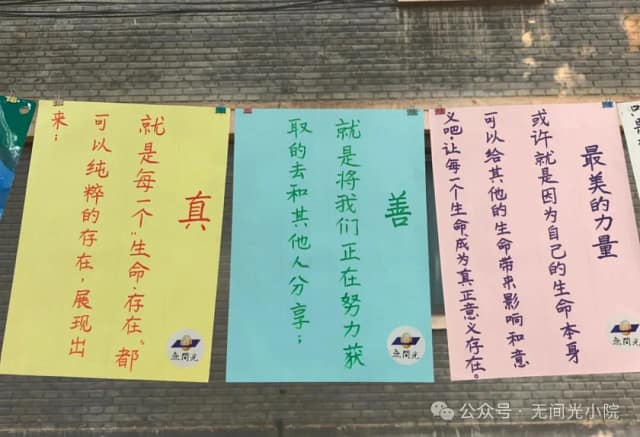 真
就是每一个“生命·存在”都
可以纯粹的存在，展现出
来；
无间光
善
就是将我们正在努力获
取的去和其他人分享；
无间光
最美的力量
或许就是因为自己的生命本身
可以给其他的生命带来影响和意
义吧·让每一个生命成为真正意义存在。
无间光
公众号·无间光小院